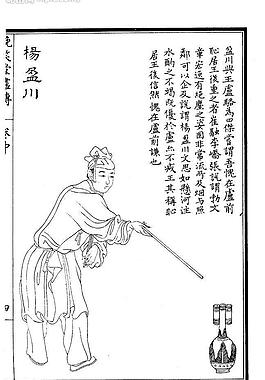 盈川與王盧駱為四傑嘗謂吾愧在盧前
恥居王後重之者崔融李嶠張說謂勃文
章宏逸有絕塵之姿固非常流所及炯與照
鄰可以企及說謂楊盈川文思如懸河注
水酌之不竭既優於盧亦不減王其恥
居王後信然愧在盧前謙也
楊盈川
晚笑堂畫傳
卷中